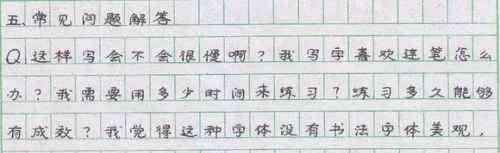 五、常见问题解答
Q.这样写会不会很慢啊？我写字喜欢连笔怎么
办？我需要用多少时间来练习？练习多久能够
有成效？我觉得这种字体没有书法字体美观，